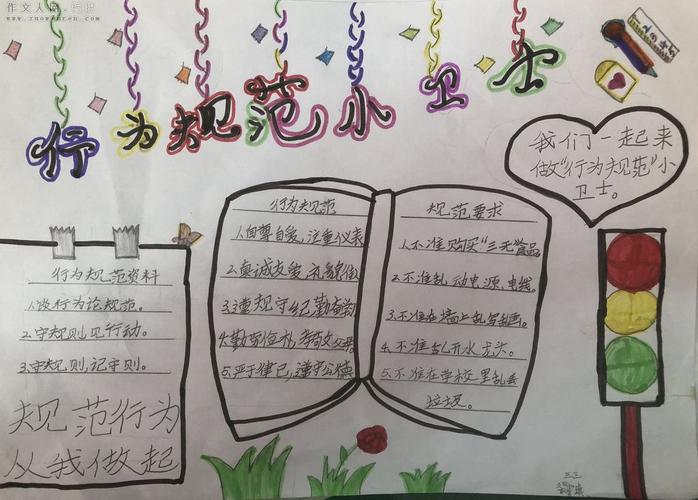 作文人网
www.zuowenren.com
行为规范小卫士
我们一起来
做“行为规范”小
卫士。
行为规范
1.自尊自爱，注重仪表
2.真诚友爱，礼貌待
3.遵规守纪勤奋
4.勤劳俭朴，孝敬父母
5.严于律已，遵守公德
规范要求
1.不准购买“三无”食品
2.不准乱动电源、电线。
3.不准在墙上乱写乱画。
4.不准乱开水龙头。
5.不准在学校里乱丢
垃圾。
行为规范资料
1.谈行为论规范。
2.守规则见行动。
3.守规则，记守则。
规范行为
从我做起
三三